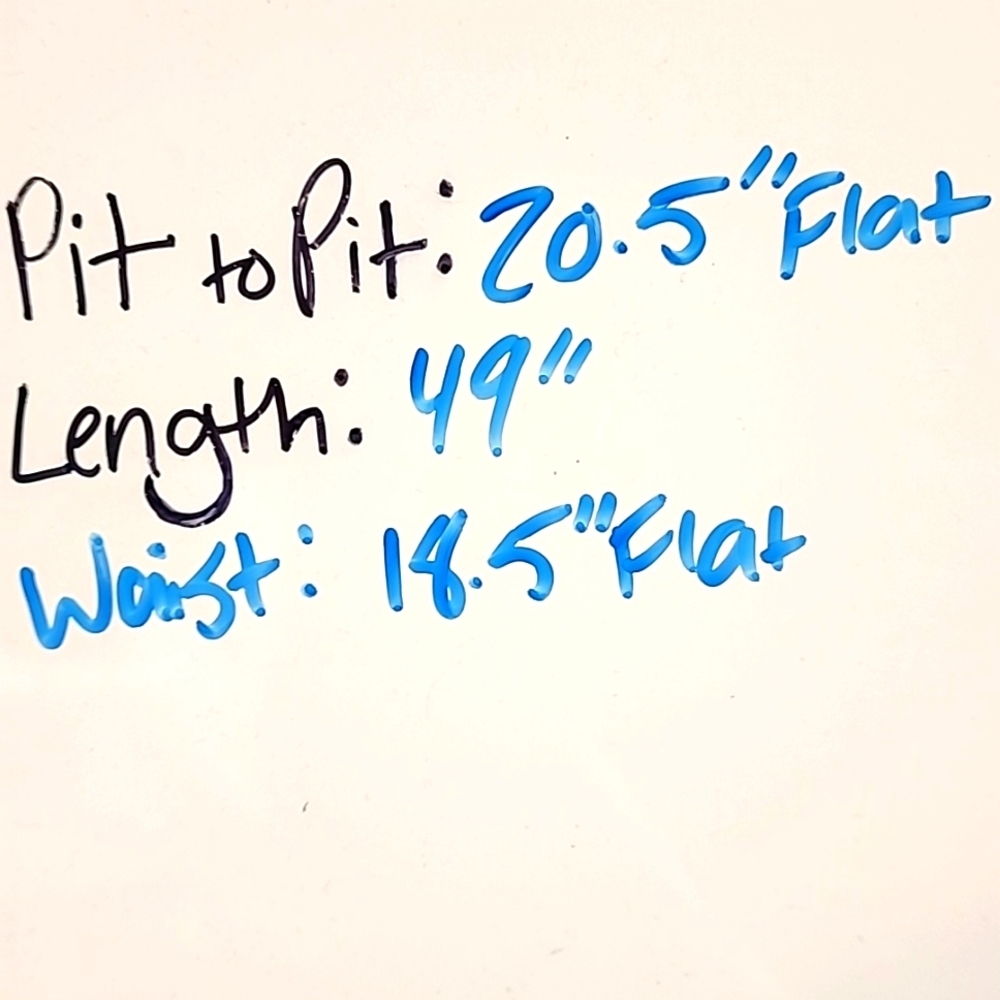 Pit to Pit: 20.5" Flat
Length: 49"
Waist: 18.5" Flat